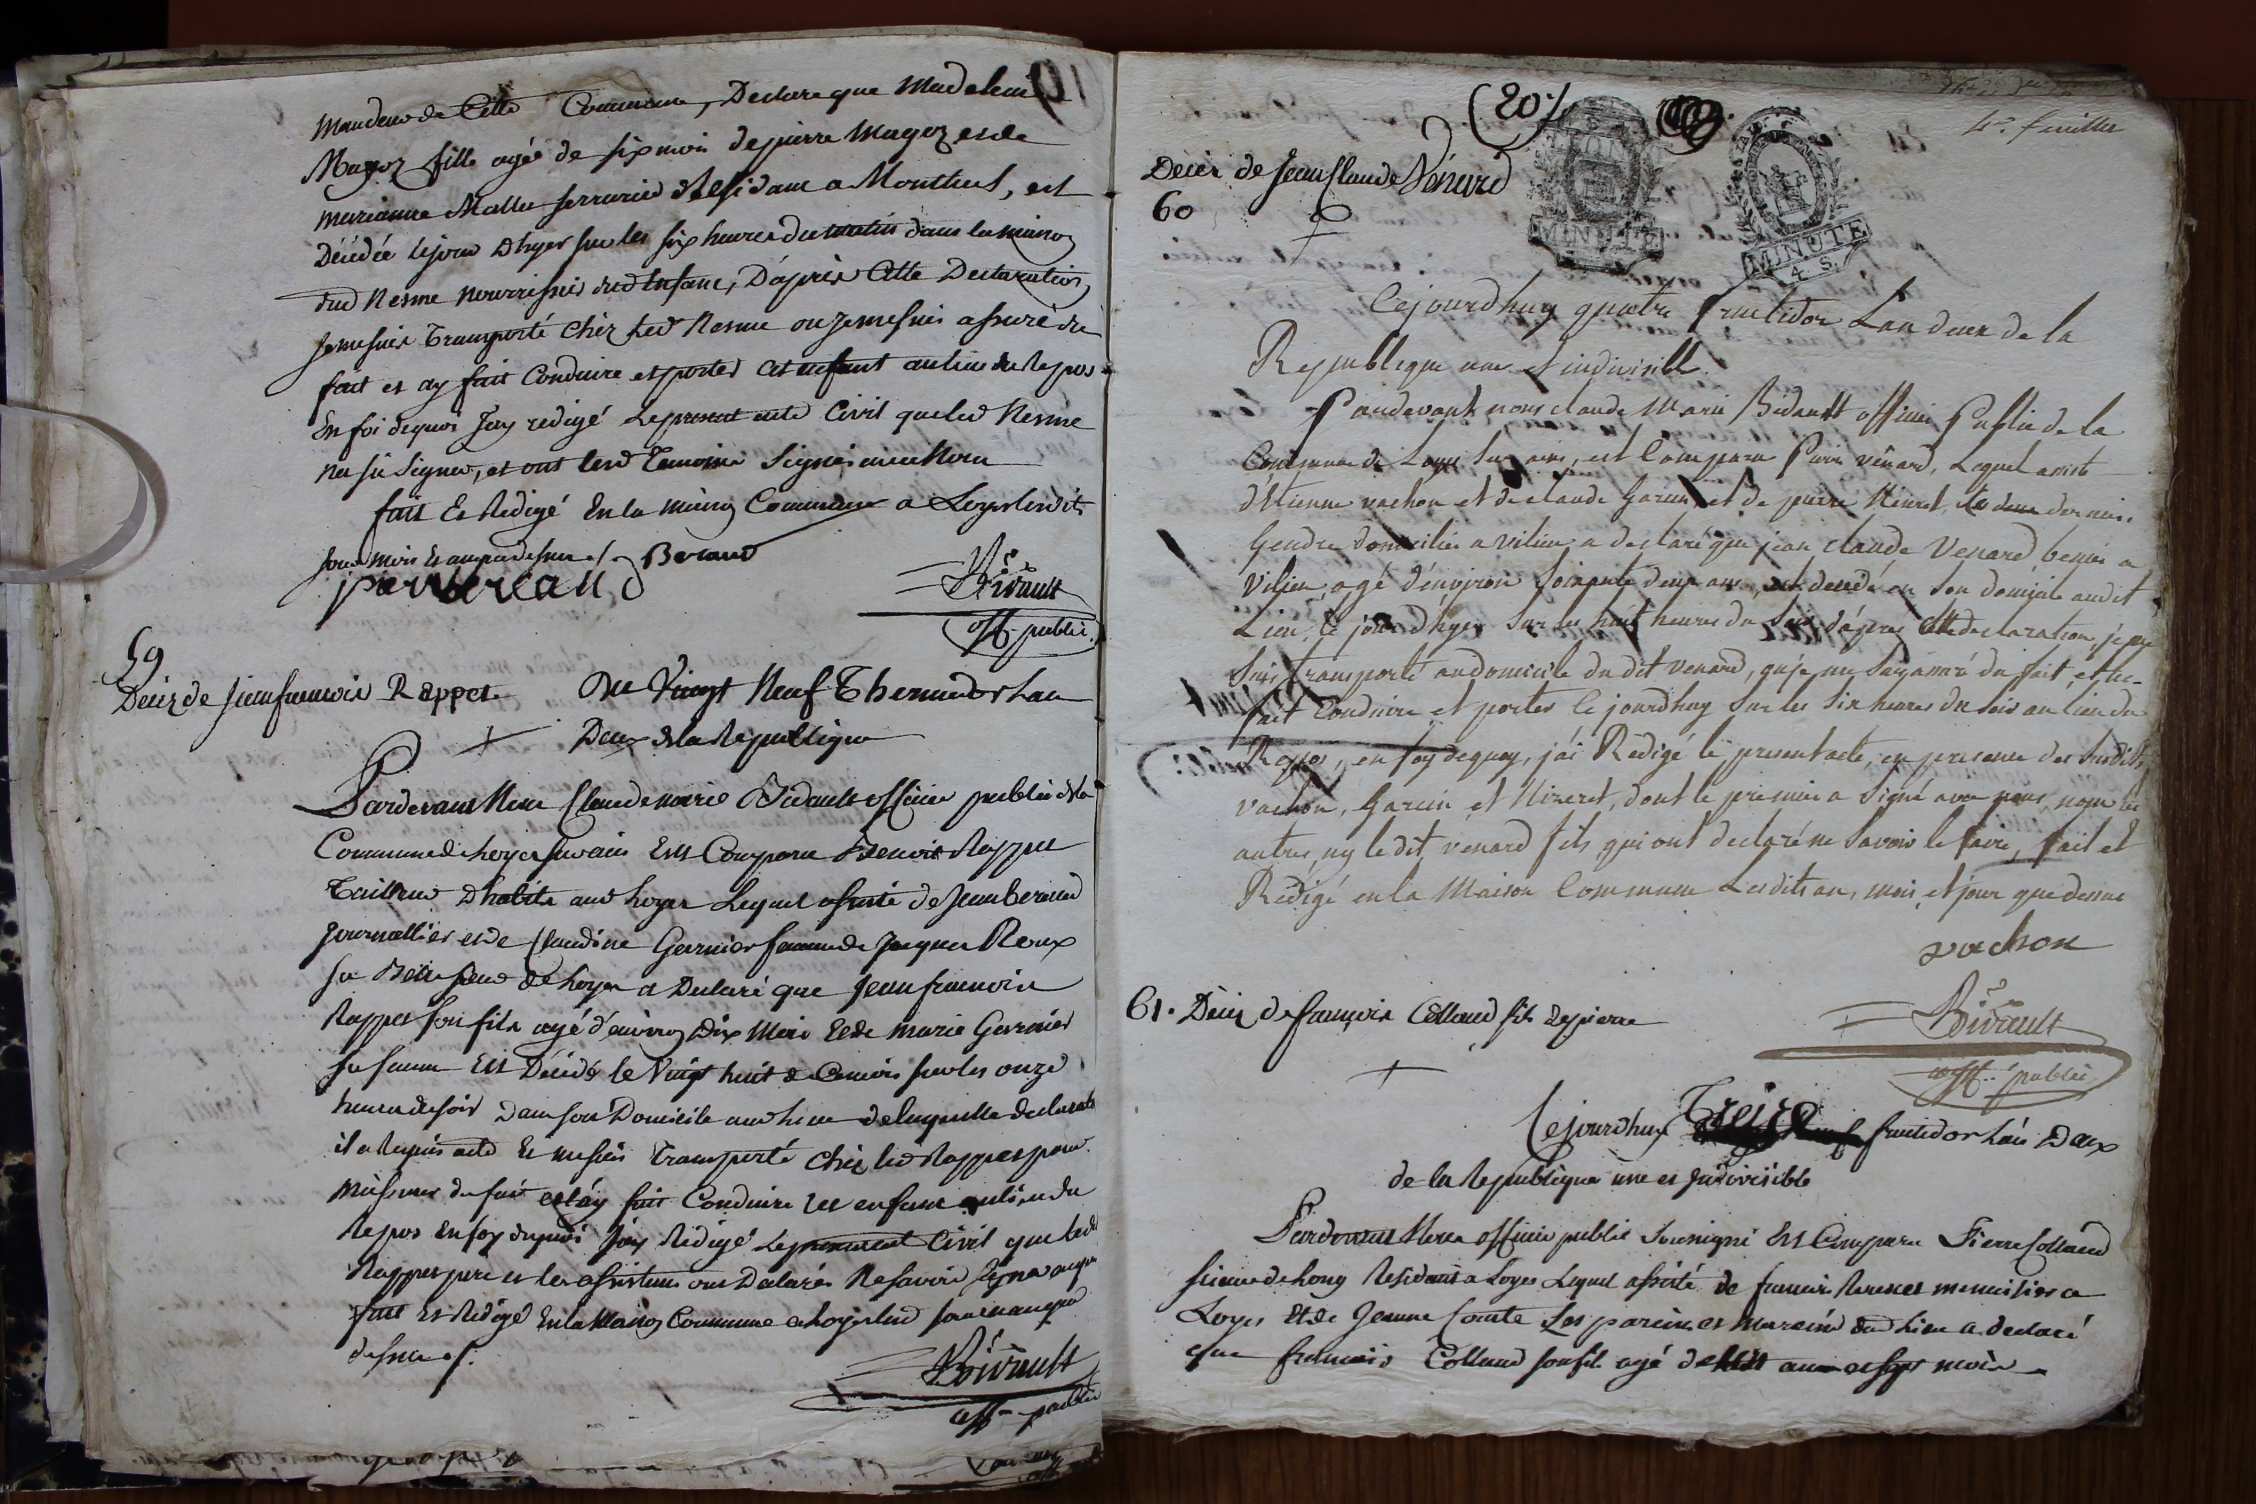 Mandeur de Cette Commune, Declare que Madeleine
Magoz fille agée de six mois de pierre Magoz et de
marianne Malle serrurier Residant a Montluel, est
Décédée le jour Dhyer sur les six heures du matin dans la maison
dud Nesme nourrissier dud Enfant, D'après Cette Declaration
Je me suis Transporté Chéz led Nesme ou Je me suis assuré du
fait et ay fait Conduire et porter cet enfant au lieu du Repos
En foi de quoi Jay redigé le present acte Civil que led Nesme
na sû Signer, et ont lesd Temoins Signés avec Nous
fait Et Redigé En la maison Commune a Loyes lesdits
jour mois Et an que dessus
Beraud
Bidault
off. public
59
Décéz de Jean francois Rappet
Du Vingt Neuf Thermidor Lan
Deux de la Republique
Pardevant Nous Claude marie Bidault officier public de la
Commune de Loyes sur ain Est Comparu Benoit Rappet
Tailleur Dhabits aud Loyes Lequel assisté de Jean beraud
journallier et de Claudine Garnier femme de Jacques Roux
sa Belle soeur de Loyes a Declaré que Jean francois
Rappet son fils agé d'environ Dix Mois Et de marie Garnier
sa femme Est Décédé le Vingt huit de Ce mois sur les onze
heures du soir Dans son Domicile aud lieu de laquelle declaration
il a Requis acte Et me suis Transporté chéz led Rappet pour
massurer du fait et l'ay fait Conduire cet enfant au lieu du
Repos En foy de quoi Jay Redigé le present Civil que led
Rappet pere et les assistans ont Declarés Ne savoir Signer
fait Et Redigé En la Maison Commune a Loyes led jour et an que
dessus
Bidault
off. public
(20)
4e feuillet
MINUTE
MINUTE
4. S.
Décès de Jean Claude Vénard
60
Cejourdhuy quatre fructidor Lan deux de la
Republique une et indivisible
Pardevant nous claude Marie Bidault officier Public de la
Commune de Loyes sur ain, est Comparu Pierre vénard, Lequel assisté
d'Etienne vachon et de claude Garcin et de pierre Nizeret, les deux derniers
Gendres domiciliés a vilieu a declaré que jean claude Venard
vilieu, agé d'environ soixante deux ans, est decedé en Son domicile audit
Lieu, le jour d'hyer Sur les huit heures du Soir, d'après Cette declaration, je me
Suis transporté au domicile du dit venard, ou je me Suis assuré du fait, et
fait Conduire et porter Cejourdhuy Sur les Six heures du soir au lieu du
Repos, en foy dequoy, j'ai Redigé le present acte, en presence des Susdits
vachon, Garcin et Nizeret, dont le premier a Signé avec nous, non les
autres, ny ledit venard fils qui ont declaré ne Savoir le faire, fait et
Redigé en la Maison Commune Lesdits an, mois, et jour que dessus
vachon
Bidault
off. public
61. Décéz de françois Collaud fils de pierre
Cejourdhuy Treize fructidor Lán Deux
de la Republique une et Indivisible
Pardevant Nous officier public soussigné Est Comparu Pierre Collaud
scieur de Long Residant a Loyes Lequel assisté de francois menuisier a
Loyes Et de Jeanne Comte Ses parein et mareine dud lieu a declaré
que francois Collaud son fils agé de huit ans et sept mois